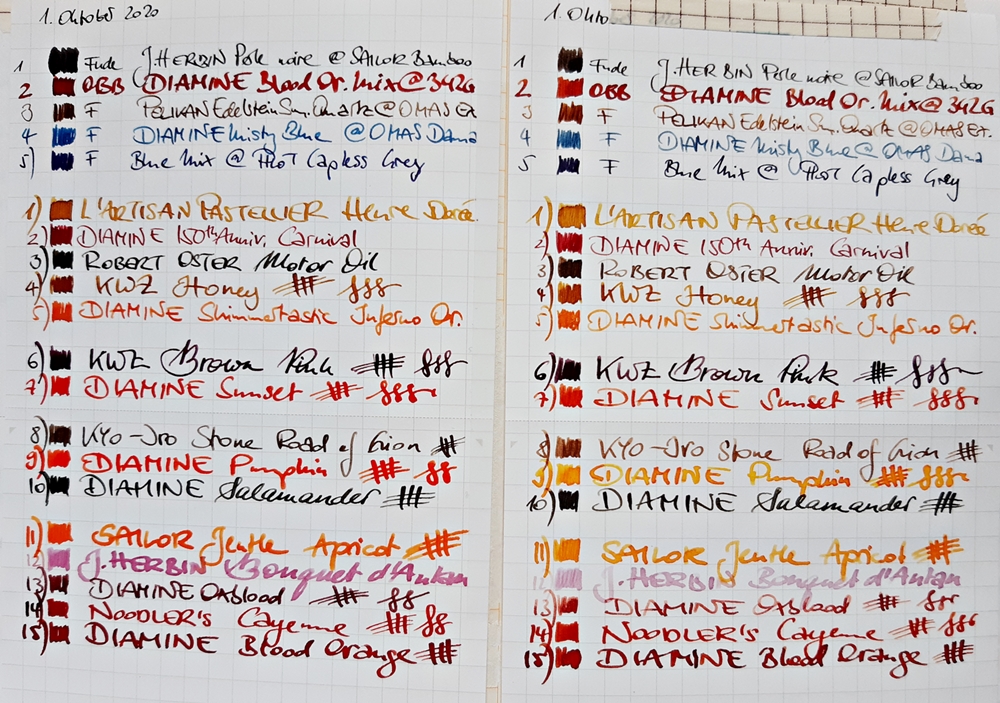 1. Oktober 2020
1 Fude J. HERBIN Perle noire @ SAILOR Bamboo
2 OBB DIAMINE Blood Or. Mix @ 342G
3 F PELIKAN Edelstein Sm. Quartz @ OMAS Ex
4 F DIAMINE Misty Blue @ OMAS Dama
5) F Blue Mix @ PILOT Capless Grey
1) L'ARTISAN PASTELLIER Heure Dorée
2) DIAMINE 150th Anniv. Carnival
3) ROBERT OSTER Motor Oil
4) KWZ Honey
5) DIAMINE Shimmertastic Inferno Or.
6) KWZ Brown Pink
7) DIAMINE Sunset
8) KYO-Iro Stone Road of Gion
9) DIAMINE Pumpkin
10) DIAMINE Salamander
11) SAILOR Jentle Apricot
12 J. HERBIN Bouquet d'Antan
13) DIAMINE Oxblood
14) NOODLER'S Cayenne
15) DIAMINE Blood Orange
1. Okto
1 Fude J. HERBIN Perle noire @ SAILOR Bamboo
2 OBB DIAMINE Blood Or. Mix @ 342G
3 F PELIKAN Edelstein Sm. Quartz @ OMAS Ex.
4 F DIAMINE Misty Blue @ OMAS Dama
5 F Blue Mix @ PILOT Capless Grey
1) L'ARTISAN PASTELLIER Heure Dorée
2) DIAMINE 150th Anniv. Carnival
3) ROBERT OSTER Motor Oil
4) KWZ Honey
5) DIAMINE Shimmertastic Inferno Or.
6) KWZ Brown Pink
7) DIAMINE Sunset
8) KYO-Iro Stone Road of Gion
9) DIAMINE Pumpkin
10) DIAMINE Salamander
11) SAILOR Jentle Apricot
12 J. HERBIN Bouquet d'Antan
13) DIAMINE Oxblood
14) NOODLER'S Cayenne
15) DIAMINE Blood Orange